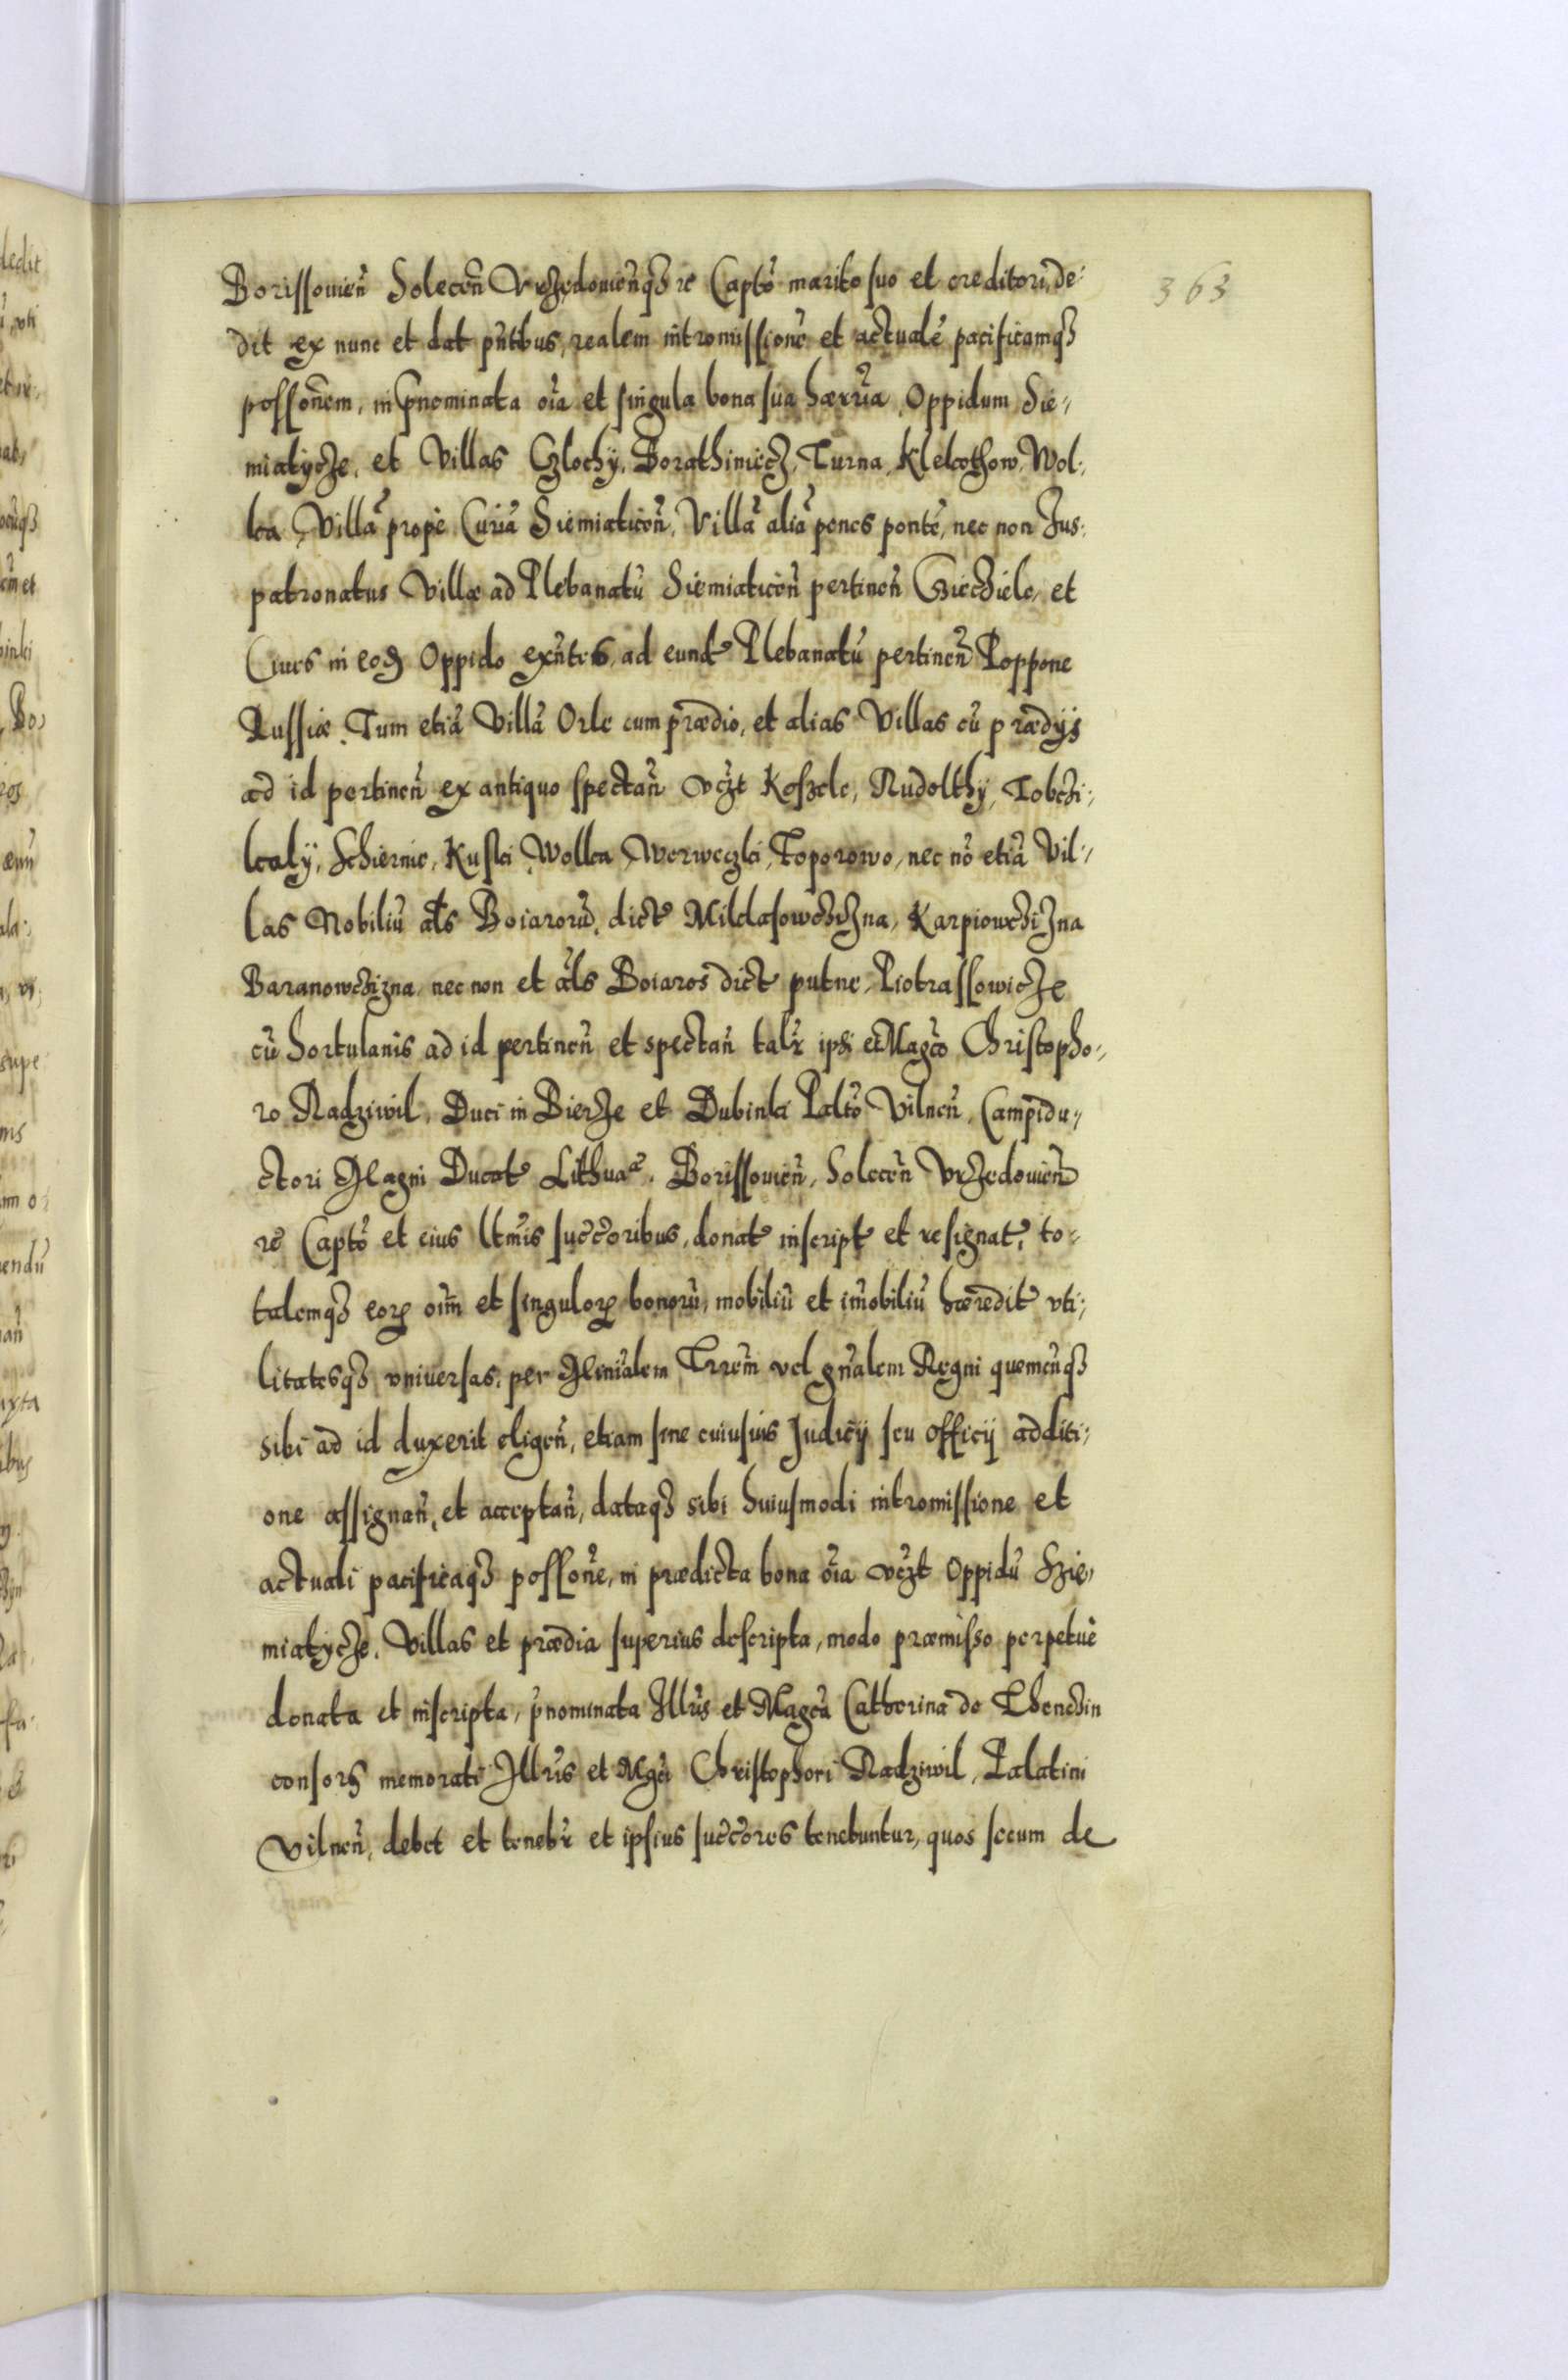 363
Borissovien̄ Solecen̄ Vrzędovien̄qȝ re Capto͂ marito suo et creditori, de-
dit ex nunc et dat pn̄tibus, realem intromissione͂ et actuale͂ pacificamqȝ
possone͂m, in p̄nominata oı͂a et singula bona sua hærrı͂a Oppidum Sie-
miatycze, et Villas Czlochÿ, Borathiniecz, Turna, Klekothow, Wol-
ka, Villa͂ prope Curia͂ Siemiaticen̄, Villa͂ alia͂ penes ponte͂, nec non Jus-
patronatus Villæ ad Plebanatu͂ Siemiaticen̄ pertinen̄ Czieczıele, et
Ciues in eod̄ Oppido exn̄tes, ad eund̄ Plebanatu͂ pertinen̄ Poppone
Russiæ Tum etia͂ Villa͂ Orle cum prædio, et alias Villas cu͂ prædijs
ad id pertinen̄ ex antiquo spectan̄ vczt Koszele, Rudolthÿ, Tobczi-
kalÿ, Schiernie, Kuski Wolka, Werweczki, Toporowo, nec no͂ etia͂ Vil-
las Nobiliu͂ als Boiaroru͂ dict Mikłasowczizna, Karpiowczizna
Baranowczizna, nec non et als Boiaros dict putne, Piotrassowicze
cu͂ hortulanis ad id pertinen̄ et spectan̄ talr̄ ipsi et Magco͂ Christopho-
ro Radziwil, Duci in Bierze et Dubinki Palto͂ Vilnen̄, Campidu-
ctori Magni Ducat Lithuaæ. Borissovien̄, Solecen̄ Vrzedovien̄
re Capto͂ et eius lt̄mis succ͂oribus, donat inscript et resignat, to-
talemqȝ eoꝝ oı͂m et singuloꝝ bonoru͂, mobiliu͂ et im͂obiliu͂ hæredit vti-
litatesqȝ vniuersas, per Mi͂nialem Trrem͂ vel gn͂alem Regni quemcu͂qȝ
sibi ad id duxerit eligen̄, etiam sine cuiusuis Judicij seu officij additi-
one assignan̄, et acceptan̄, dataqȝ sibi huiusmodi intromissione et
actuali pacificaqȝ possone͂, in prædicta bona oı͂a vczt Oppidu͂ Szie-
miatycze, Villas et prædia superius descripta, modo præmisso perpetuè
donata et inscripta, p̄nominata Illr͂is et Magca͂ Catherina de Thenczin
consors memorati Illr͂is et Mgci͂ Christophori Radziwil, Palatini
Vilnen̄, debet et tenebr̄ et ipsius succ͂ores tenebuntur, quos secum de